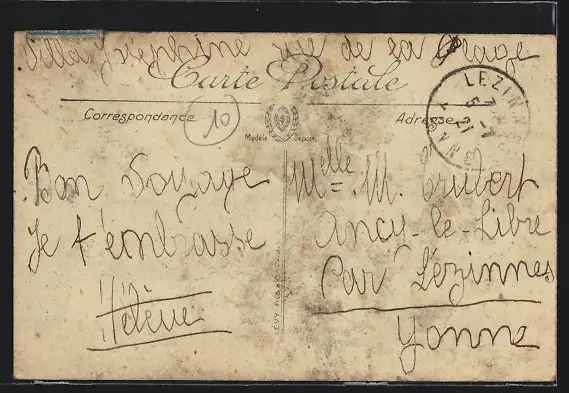 Villa Joséphine rue de la Plage
Carte Postale
Correspondance
10
Adresse
Modèle Déposé
LEZINN
7
5 -7
21
Bon Voyage
Je t'embrasse
Hélène
Mlle M. Trubert
Ancy-le-Libre
Par Lézinnes
Yonne